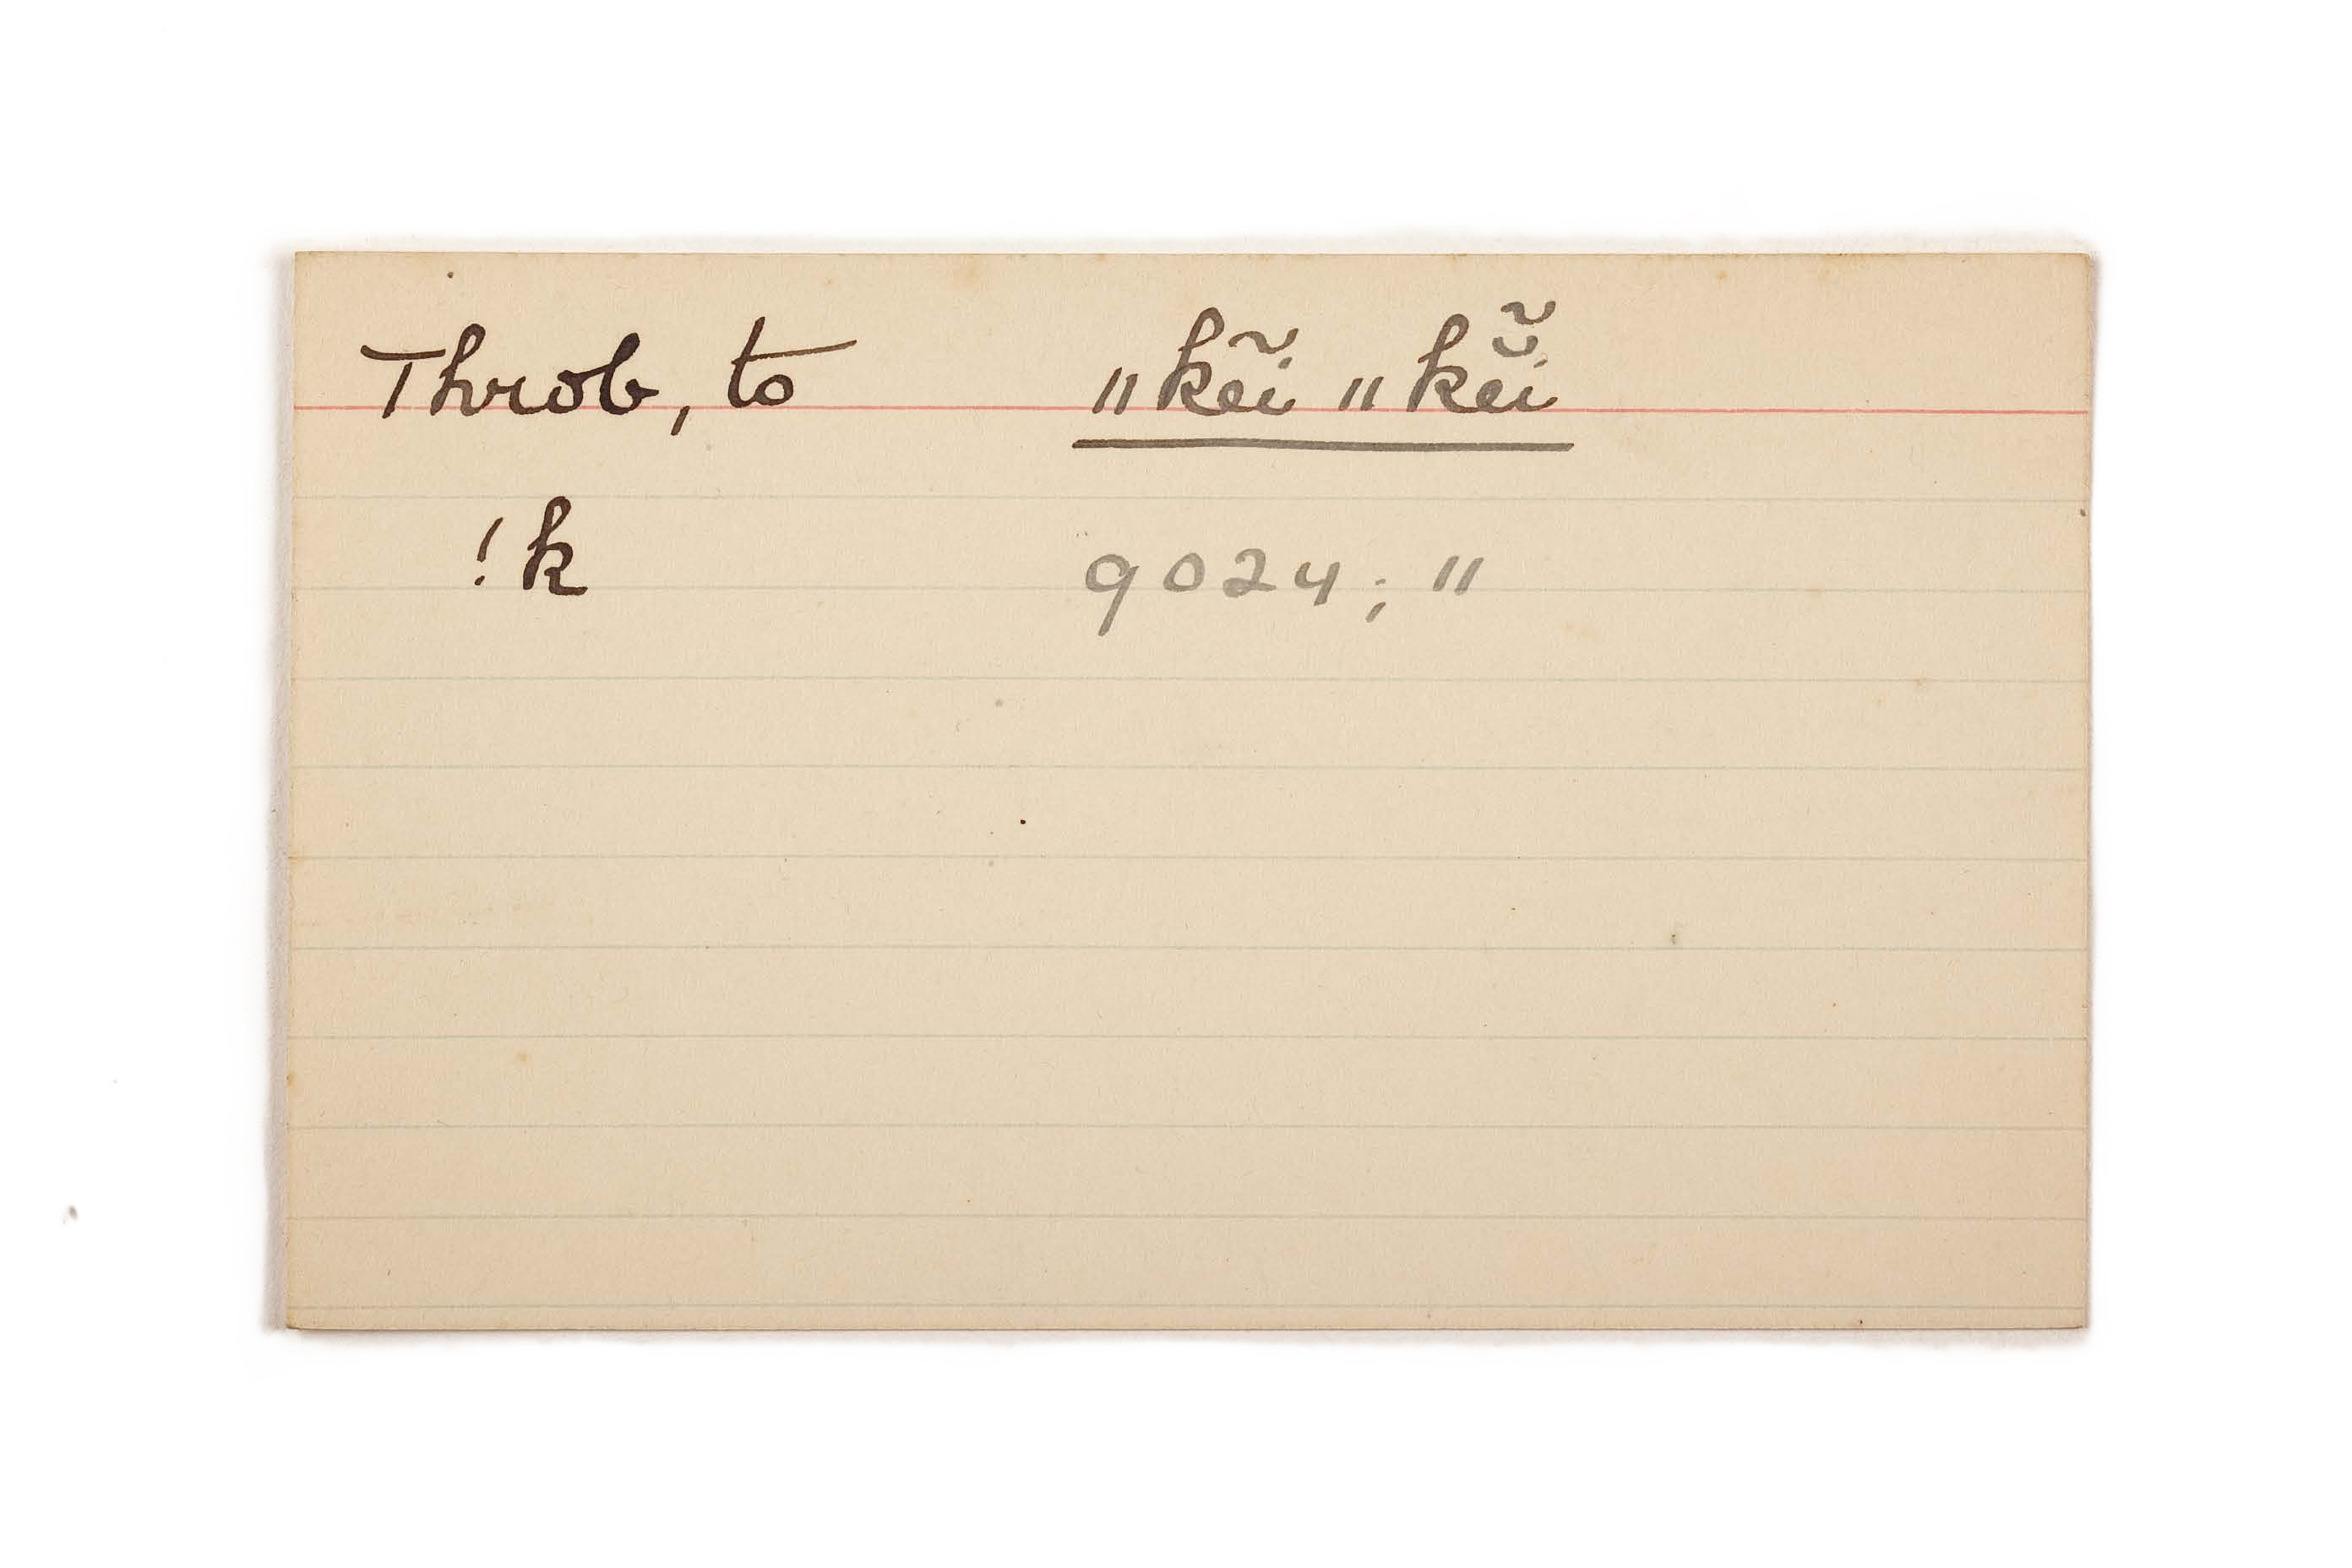 Throb, to "kẽi "kĕ̃i
!k 9024; "